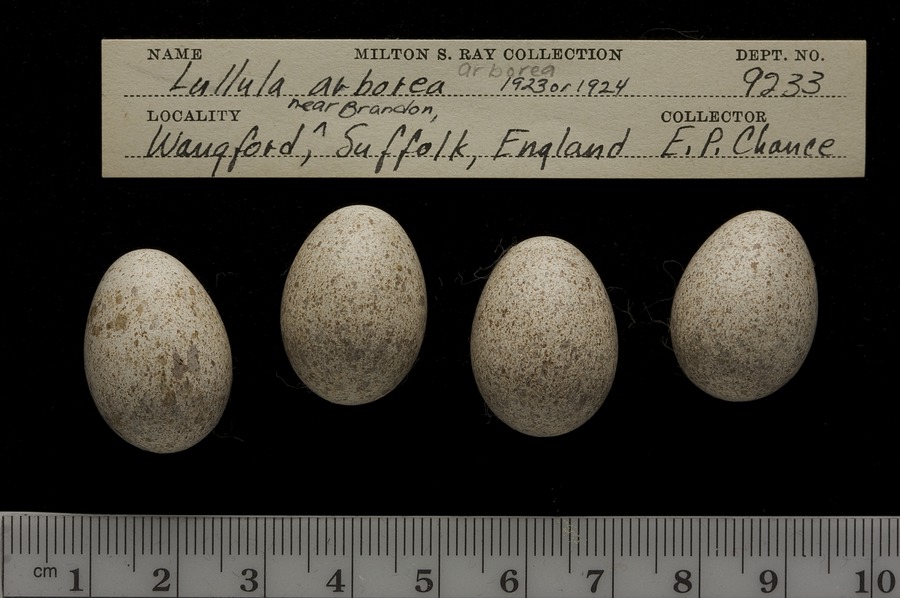 NAME MILTON S. RAY COLLECTION DEPT. NO.
Lullula arborea arborea 1923 or 1924 9233
near Brandon,
LOCALITY COLLECTOR
Wangford, ^ Suffolk, England E. P. Chance
cm 1 2 3 4 5 6 7 8 9 10